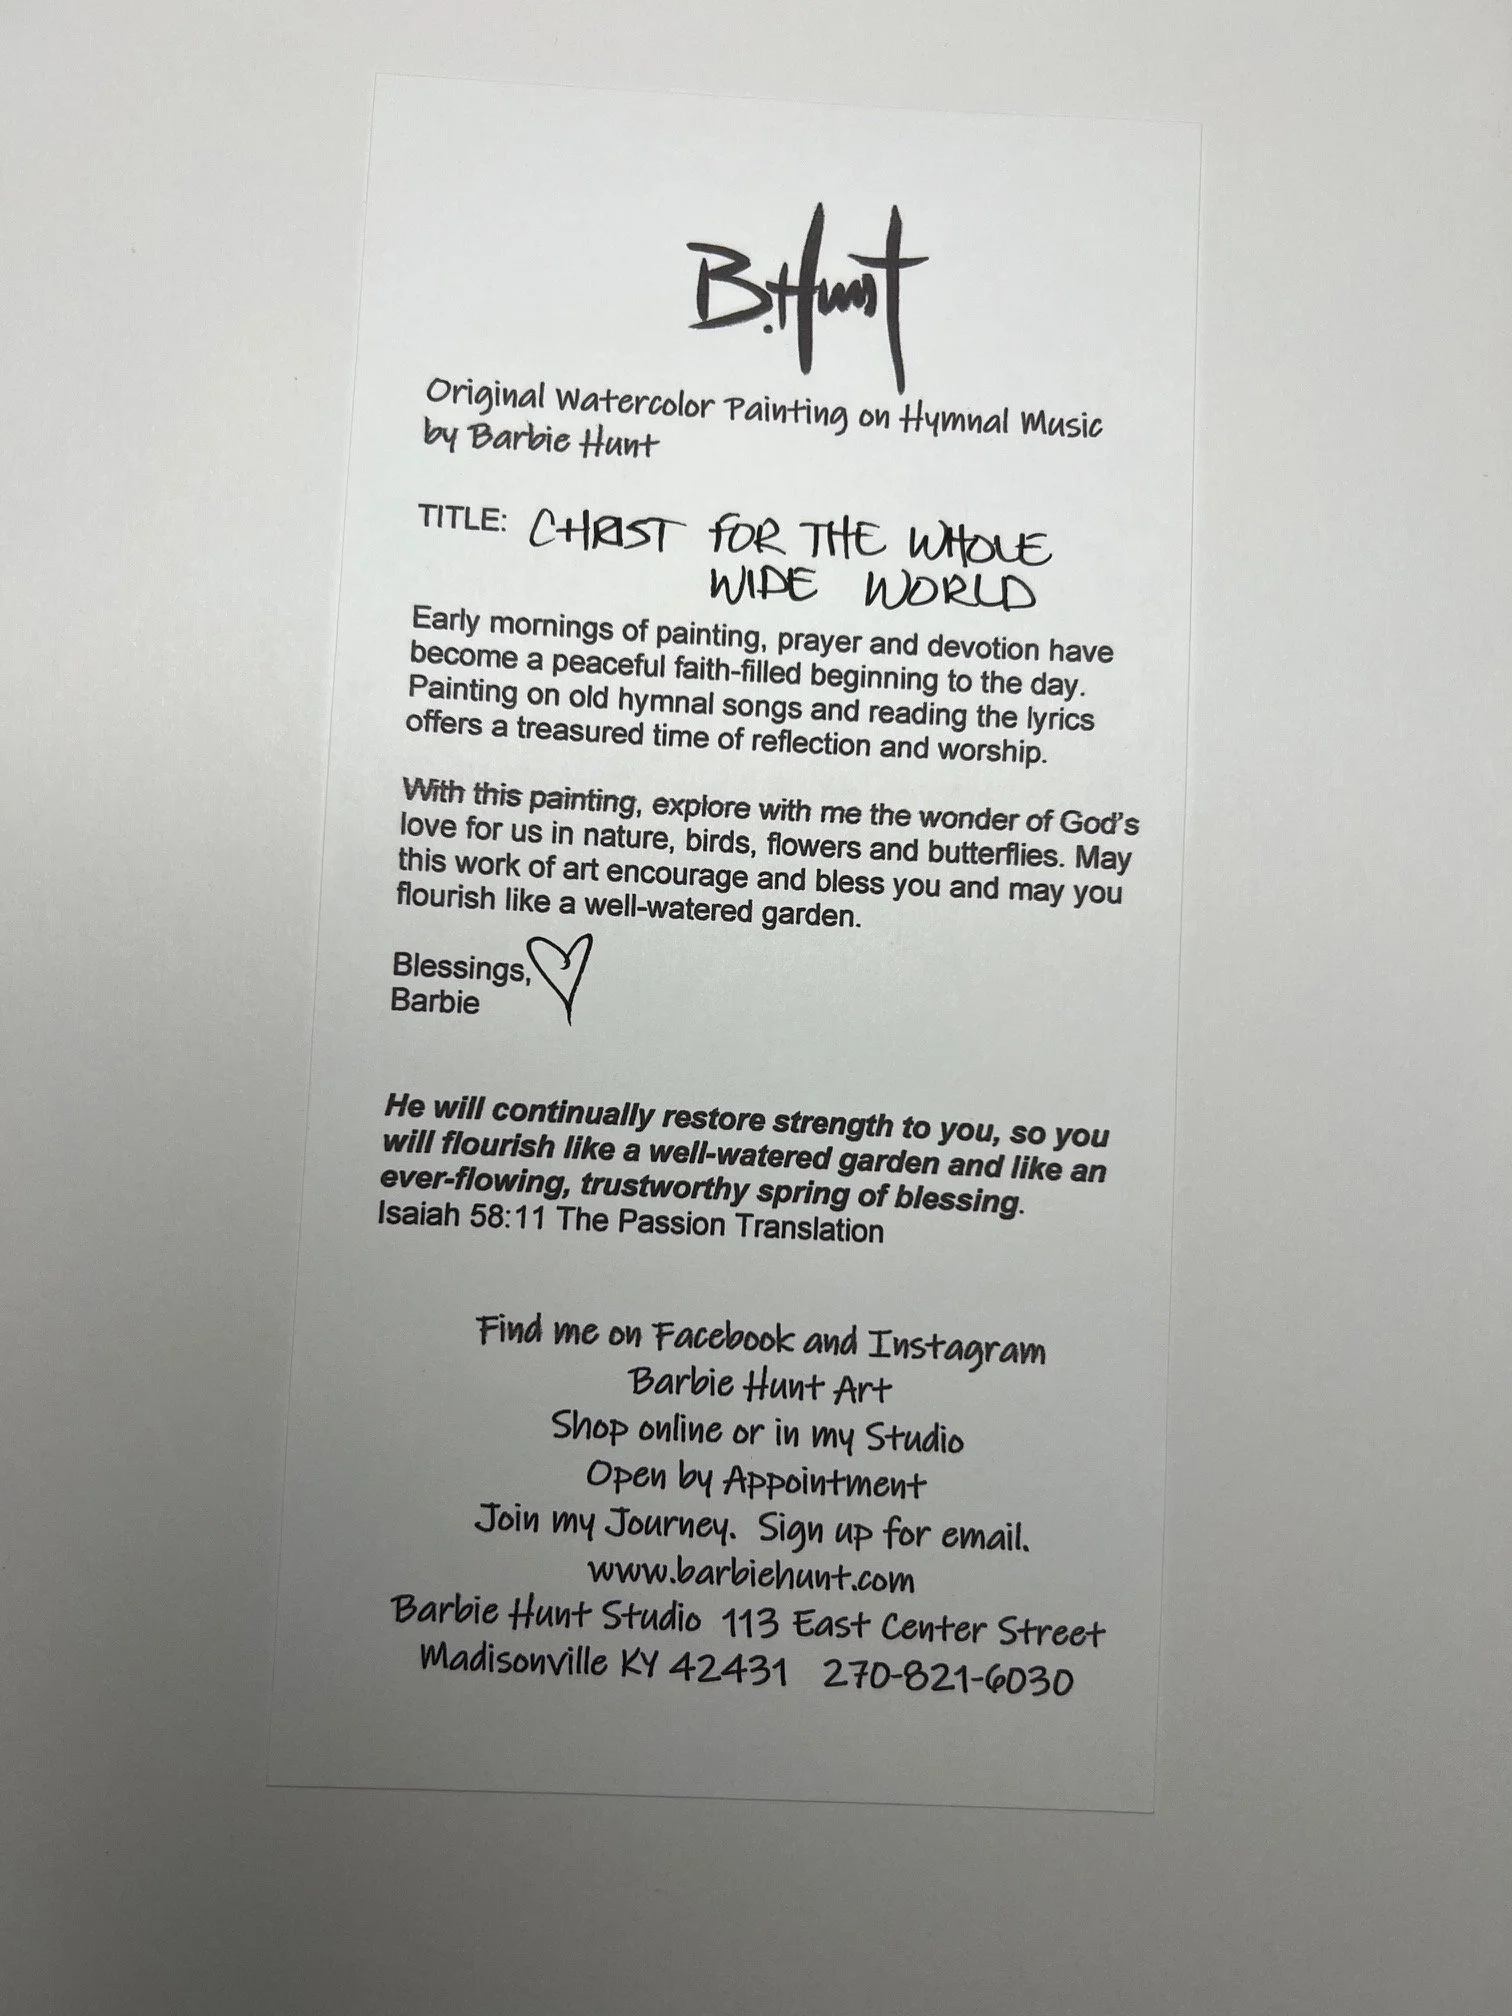 B.Hunt
Original Watercolor Painting on Hymnal Music
by Barbie Hunt
TITLE: CHRIST FOR THE WHOLE
WIDE WORLD
Early mornings of painting, prayer and devotion have
become a peaceful faith-filled beginning to the day.
Painting on old hymnal songs and reading the lyrics
offers a treasured time of reflection and worship.
With this painting, explore with me the wonder of God's
love for us in nature, birds, flowers and butterflies. May
this work of art encourage and bless you and may you
flourish like a well-watered garden.
Blessings,
Barbie
He will continually restore strength to you, so you
will flourish like a well-watered garden and like an
ever-flowing, trustworthy spring of blessing.
Isaiah 58:11 The Passion Translation
Find me on Facebook and Instagram
Barbie Hunt Art
Shop online or in my Studio
Open by Appointment
Join my Journey. Sign up for email.
www.barbiehunt.com
Barbie Hunt Studio 113 East Center Street
Madisonville KY 42431 270-821-6030